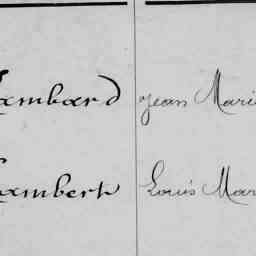 Lambard Jean Mari
Lambert Louis Mar